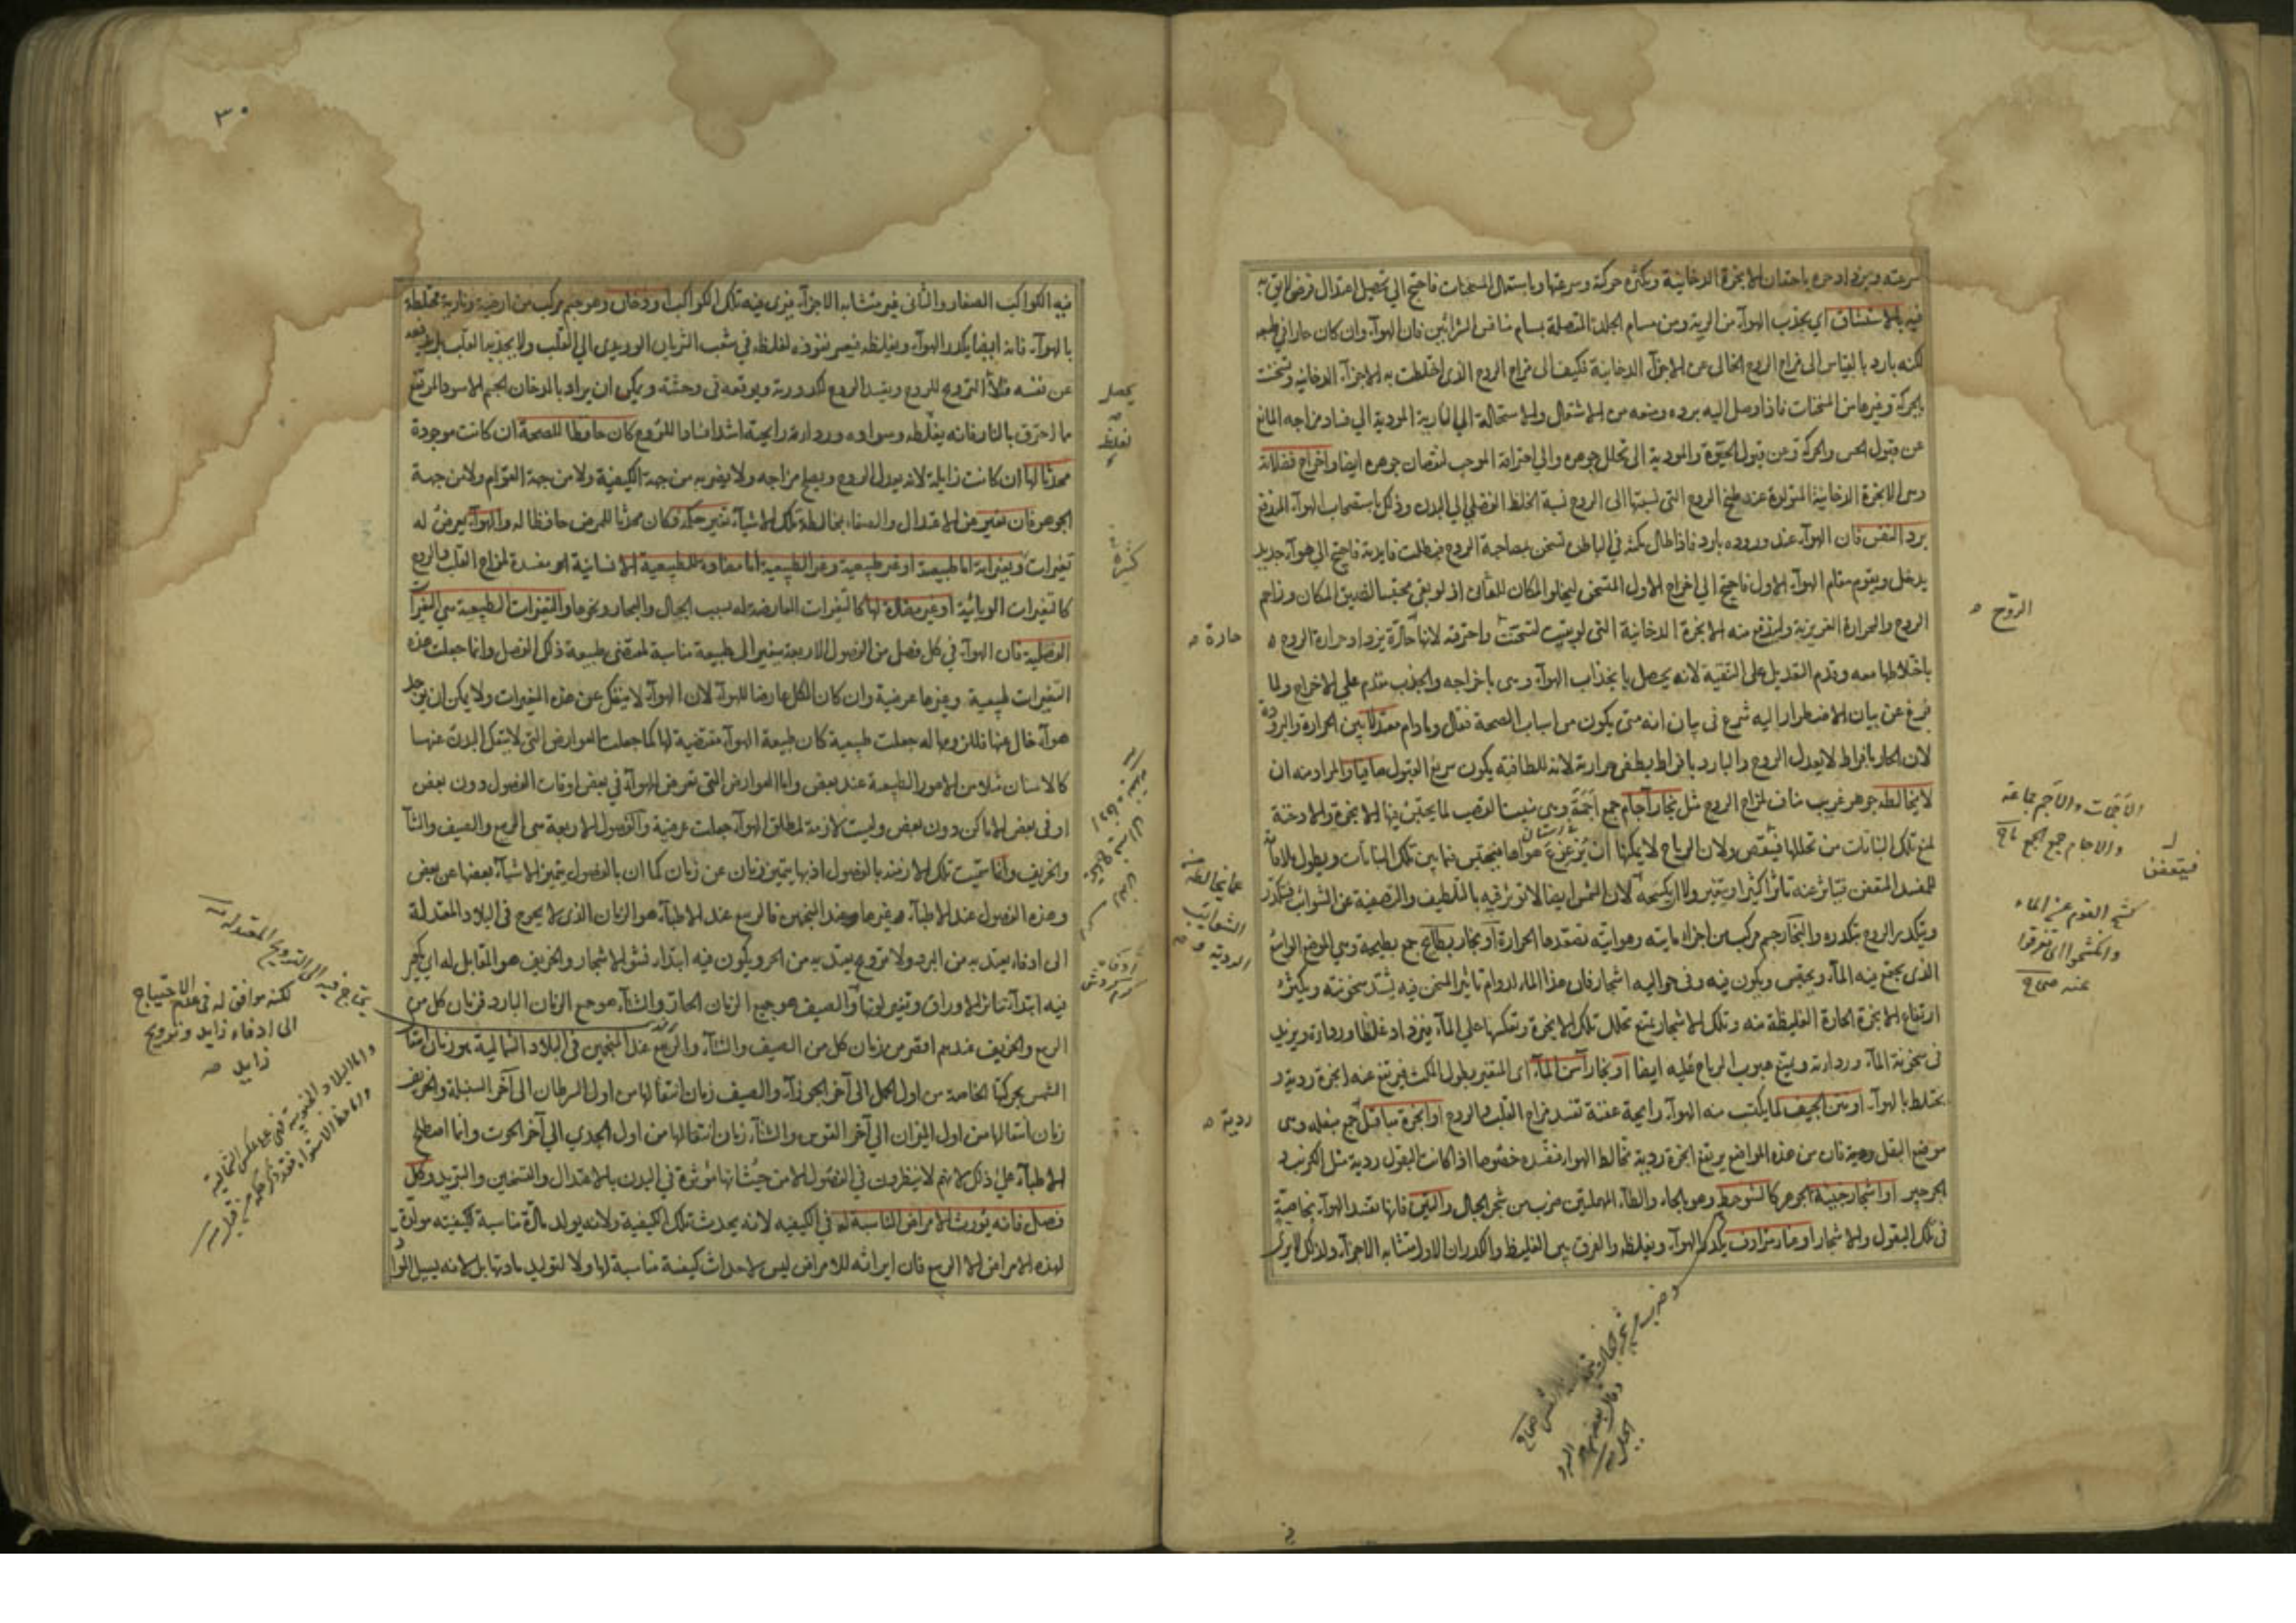 سرعته ويزداد حره باحتقان الابخرة الدخانية وبكثرة حركته وسرعتها وباستعمال المسخنات فاحتيج الى تحصيل اعتدال
فيه بالاستنشاق اي بجذب الهوآء من الرية ومن مسام الجلد المتصلة بمسام منافس الشرائين فان الهوآء وان كان حارا في طبعه
لكنه بارد بالقياس الى مزاج الروح الخالى عن الاجزآء الدخانية فكيف الى مزاج الروح الذى اختلطت به الاجزآء الدخانية وتسخنت
بالحركة وغيرها من المسخنات فاذا وصل اليه برده ومنعه من الاشتعال والاستحالة الى النارية المودية الى فساد مزاجه المانع
عن قبول الحس والحركة وعن قبول الحيوة والمودية الى تحلل جوهره والى احتراقه الموجب لنقصان جوهره ايضا واخراج فضلاته
وهى الابخرة الدخانية المتولدة عند طبخ الروح التى نسبتها الى الروح نسبة الخلط الفضلى الى البدن وذلك باستصحاب الهوآء المندفع
برد النفس فان الهوآء عند وروده بارد فاذا طال مكثه في الباطن تسخن بمصاحبة الروح فبطلت فايدته فاحتيج الى هوآء جديد
يدخل ويقوم مقام الهوآء الاول فاحتيج الى اخراج الاول المتسخن ليخلو المكان للثانى اذ لو بقى محتبسا لضيق المكان وزاحم
الروح والحرارة الغريزية وليندفع منه الابخرة الدخانية التى لو بقيت لتسخنت واحترقت لانها حارة يزداد حرارة الروح
باختلاطها معه وقدم التعديل على التنقية لانه يحصل بانجذاب الهوآء وهى باخراجه والجذب مقدم على الاخراج ولما
فرغ عن بيان الاضطرار اليه شرع في بيان انه متى يكون من اسباب الصحة فقال وما دام معتدلا بين الحرارة والبرودة
لان الحار بافراط لا يعدل الروح والبارد بافراط يطفى حرارته لانه للطافته يكون سريع القبول صافيا والمراد منه ان
لا يخالطه جوهر غريب مناف لمزاج الروح مثل بخار آجام جمع اجمة وهى منبت القصب لما يحتبس فيها الابخرة والادخنة
لمنع تلك النباتات من تحللها فيتعفن ولان الرياح لا يمكنها ان تزعزع هواها فيحتبس فيما بين تلك النباتات ويطول ملاقاته
للمفسد المتعفن فيتاثر عنه تاثرا كثيرا ويتغير ولا لان الشمس ايضا لا توثر فيه بالتلطيف والتصفية عن الشوائب فيتكدر
ويتكدر الروح بتكدره والبخار جسم مركب من اجزاء مايية وهوايية تصعدها الحرارة او بخار بطائح جمع بطيحة وهى الموضع الواسع
الذى يجتمع فيه المآء ويحتبس ويكون فيه وفى حواليه اشجار فان هذا الماء لدوام تاثير المسخن فيه يشتد سخونته ويكثر
ارتفاع الابخرة الحارة الغليظة منه وتلك الاشجار تمنع تحلل تلك الابخرة وتعكسها على المآء فيزداد غلظا ورداءة ويزيد
فى سخونة المآء ورداءته ويمنع هبوب الرياح عليه ايضا او بخار آسن المآء اى المتغير بطول المكث فيرتفع عنه ابخرة ردية و
تختلط بالهوآء او نتن الجيف لما يكتسب منه الهوآء رايحة عفنة تفسد مزاج القلب والروح او ابخرة مباقل جمع مبقلة وهى
موضع البقل وهيه فان من هذه المواضع يرتفع ابخرة ردية تخالط الهوآء فتفسده خصوصا اذا كانت البقول ردية مثل الكرنب و
الجرجير او اشجار خبيثة الجوهر كالشوحط وهو بالحاء والطآء المهملتين ضرب من شجر الجبال والتين فانها تفسد الهوآء بخاصية
فى تلك البقول والاشجار او غبار مترادف يكدر الهوآء ويغلظه والفرق بين الغليظ والكدر ان الاول متشابه الاجزآء ولذلك لا يرى
الروح
حارة
الاجمات والاجم جماعة
والاجام جمع الجمع ص
فيتعفن
عما يخالطه من
الشوائب
الردية
كشح القوم عن الماء
وانكشحوا اى تفرقوا
عنه ص
ردية
وضرب من شجر الجبال
٣٠
فيه الكواكب الصغار والثانى غير متشابه الاجزآء فيرى فيه تلك الكواكب او دخان وهو جسم مركب من ارضية ونارية مختلطة
بالهوآء فانه ايضا يكدر الهوآء ويغلظه فيعسر نفوذه لغلظه في شعب الشريان الوريدى الى القلب ولا يجذبه القلب بل يدفعه
عن نفسه فلا الترويح للروح ويفسد الروح لكدورته ويوقعه في وحشة ويمكن ان يراد بالدخان الجسم الاسود المرتفع
ما احترق بالنار فانه بغلظه وسواده ورداءة رايحته اشد افسادا للروح كان حافظا للصحة ان كانت موجودة
محدثا لها ان كانت زايلة لانه يعدل الروح ويصلح مزاجه ولا يضر به من جهة الكيفية ولا من جهة القوام ولا من جهة
الجوهر فان تغير عن الاعتدال والصفاء بمخالطة تلك الاشيآء تغير حكمه فكان محدثا للمرض حافظا له والهوآء يعرض له
تغيرات وتغيراته اما طبيعية او غير طبيعية وغير الطبيعية اما مضادة للطبيعة الانسانية اى مفسدة لمزاج القلب والروح
كالتغيرات الوبائية او غير مضادة لها كالتغيرات العارضة له بسبب الجبال والبحار ونحوها والتغيرات الطبيعية هى التغيرات
الفصلية فان الهوآء في كل فصل من الفصول الاربعة يتغير الى طبيعة مناسبة لمقتضى طبيعة ذلك الفصل وانما جعلت هذه
التغيرات طبيعية وغيرها عرضية وان كان الكل عارضا للهوآء لان الهوآء لا ينفك عن هذه التغيرات ولا يمكن ان يوجد
هوآء خال عنها فللزومها له جعلت طبيعية كان طبيعة الهوآء مقتضية لها كما جعلت العوارض التى لا ينفك البدن عنها
كالاسنان مثلا من الامور الطبيعية عند بعض واما العوارض التى تعرض للهوآء في بعض اوقات الفصول دون بعض
او فى بعض الاماكن دون بعض وليست لازمة لمطلق الهوآء جعلت عرضية والفصول الاربعة هى الربيع والصيف والشتآء
والخريف وانما سميت تلك الازمنة بالفصول اذ بها يتميز زمان عن زمان كما ان بالفصول يتميز الاشيآء بعضها عن بعض
وهذه الفصول عند الاطبآء غيرها عند المنجمين فالربيع عند الاطبآء هو الزمان الذى لا يحوج فى البلاد المعتدلة
الى ادفاء يعتد به من البرد ولا ترويح يعتد به من الحر ويكون فيه ابتداء نشو الاشجار والخريف هو المقابل له اى
فيه ابتدآء تناثر الاوراق وتغير لونها والصيف هو جميع الزمان الحار والشتآء هو جميع الزمان البارد فزمان كل من
الربيع والخريف عندهم اقصر من زمان كل من الصيف والشتآء والربيع عند المنجمين فى البلاد الشمالية هو زمان انتقال
الشمس بحركتها الخاصة من اول الحمل الى آخر الجوزآء والصيف زمان انتقالها من اول السرطان الى آخر السنبلة والخريف
زمان انتقالها من اول الميزان الى آخر القوس والشتآء زمان انتقالها من اول الجدي الى آخر الحوت وانما اصطلح
الاطبآء على ذلك لانهم لا ينظرون في الفصول الا من حيث انها موثرة في البدن بالاعتدال والتسخين والتبريد وكل
فصل فانه يورث الامراض المناسبة له في الكيفية لانه يحدث تلك الكيفية ولانه يولد مادة مناسبة كيفيته موادة
لهذه الامراض الا الربيع فان ايراثه للامراض ليس لاحداث كيفية مناسبة لها ولا لتوليد مادتها بل لانه يسيل المواد
يحصل
لغلظه
كثيرة
يحتاج فيه الى الترويح المعتد به
لكنه موافق له فى عدم الاحتياج
الى ادفاء زايد وترويح
زايد
واما البلاد الجنوبية فعلى عكس الشمالية